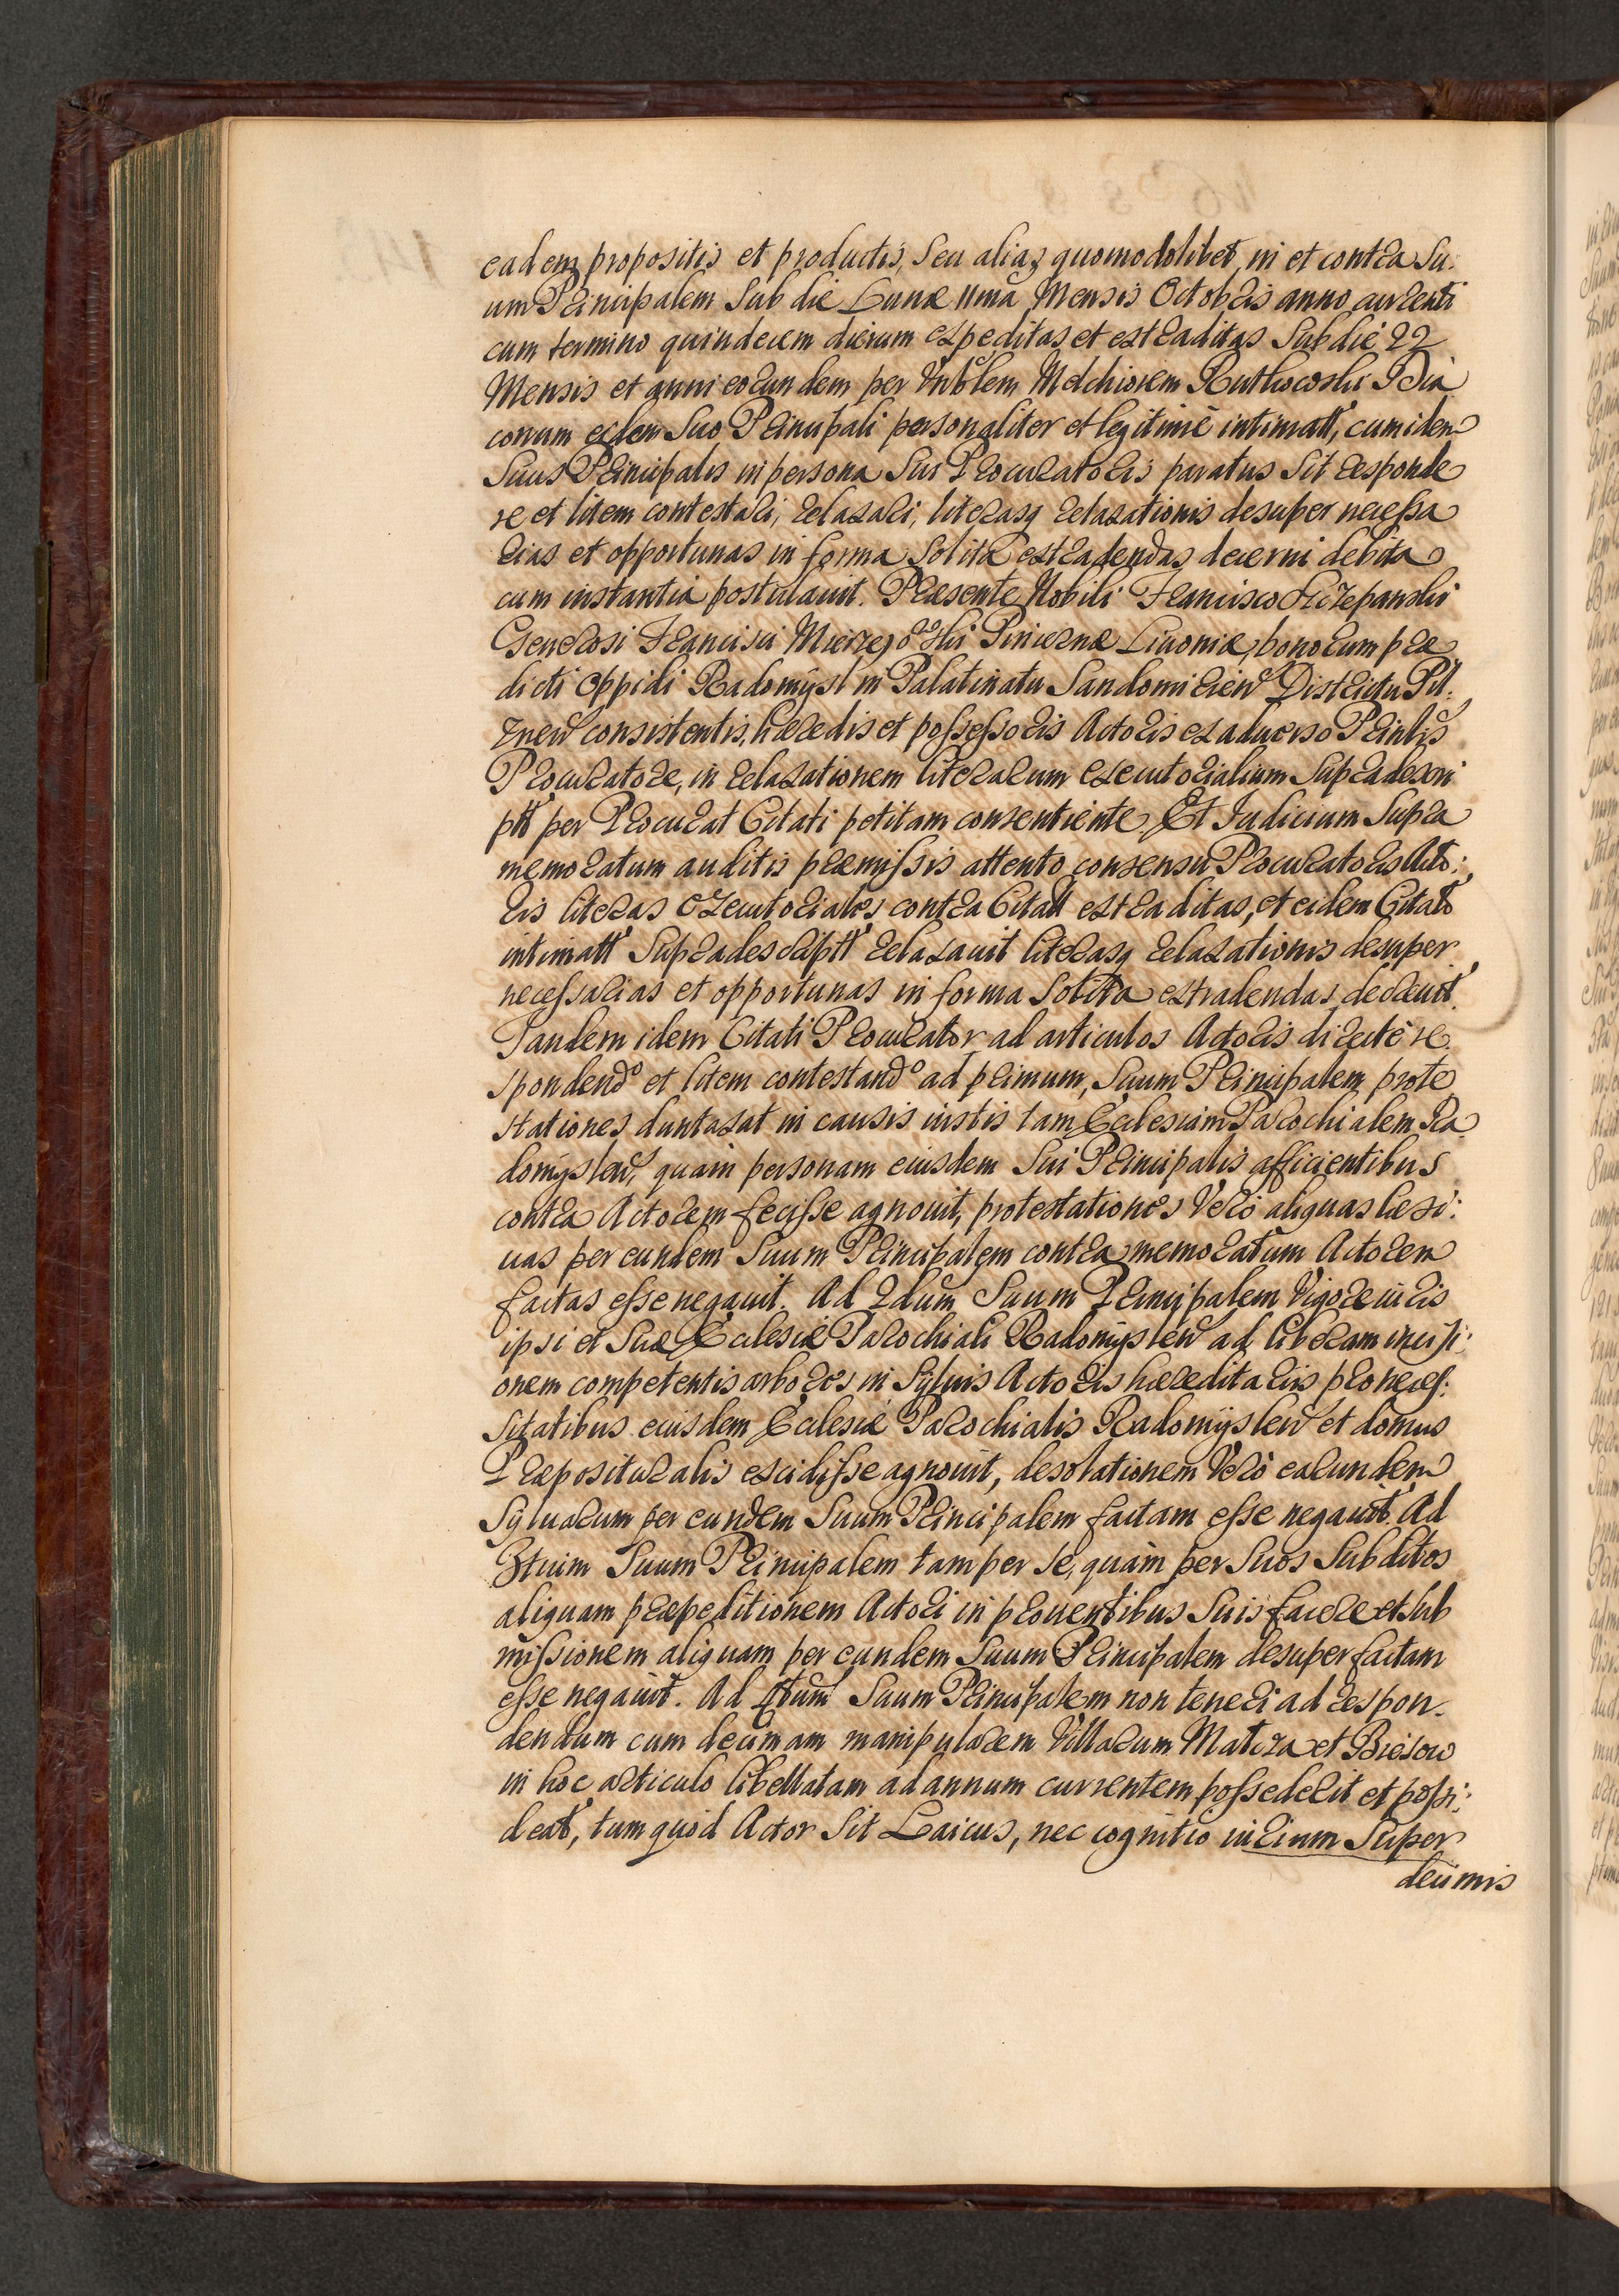 eadem propositis et productis, seu alias quomodolibet, in et contra Su:
um Principalem sub die Lunæ 11ma Mensis Octobris anno currenti
cum termino quindecem dierum expeditas et extraditas sub die 22
Mensis et anni eorundem per Melchiorem Dia
conum eidem Suo Principali personaliter et legitimè intimatt, cum idem
Suus Principalis in persona Sui Procuratoris paratus sit responde
re et litem contestari, relaxari, literasq relaxationis desuper necessa
rias et opportunas in forma solita extradendas decerni debita
cum instantia postulauit. Præsente Nobili Francisco Szczepanski
Generosi Francisci Pincernæ Liuoniæ, bonorum præ
dicti oppidi Radomysl in Palatinatu Sandomirien Districtu Pil:
znen consistentis, hæredis et possessoris Actoris ex aduerso Prinlis
Procuratore, in relaxationem literarum executorialium supradescri
ptt per Procurat Citati petitam consentiente. Et Iudicium supra
memoratum auditis præmissis attento consensu Procuratoris Acto:
ris literas executoriales contra Citatt extraditas, et eidem Citato
intimatt supradescriptt relaxauit literasq relaxationis desuper
necessarias et opportunas in forma solita extradendas decreuit.
Tandem idem Citati Procurator ad articulos Actoris directè re
spondendo et litem contestando ad primum, Suum Principalem prote
stationes duntaxat in causis iustis tam Ecclesiam Parochialem Ra
domyslen, quàm personam eiusdem Sui Principalis afficientibus
contra Actorem fecisse agnouit, protestationes verò aliquas læsi:
uas per eundem Suum Principalem contra memoratum Actorem
factas esse negauit. Ad 2dum Suum Principalem vigore iuris
ipsi et suæ Ecclesiæ Parochiali Radomyslen ad liberam incisi:
onem competentis arbores in syluis Actoris hæreditariis pro neces:
sitatibus eiusdem Ecclesiæ Parochialis Radomyslen et domus
Præposituralis excidisse agnouit, desolationem verò earundem
syluarum per eundem Suum Principalem factam esse negauit. Ad
3tium Suum Principalem tam per se, quàm per suos subditos
aliquam præpeditionem Actori in prouentibus suis facere et sub
missionem aliquam per eundem Suum Principalem desuper factam
esse negauit. Ad 4tum Suum Principalem non teneri ad respon
dendum cum decimam manipularem villarum et
in hoc articulo libellatam ad annum currentem possederit et possi:
deat, tum quòd Actor sit Laicus, nec cognitio iurium super
decimis